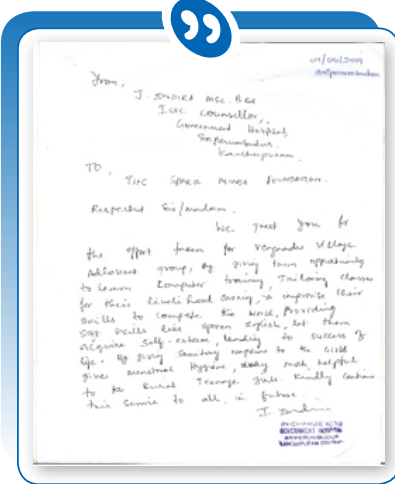 From,
J. INDIRA MSC. BEd
ICTC Counsellor,
Government Hospital
Sriperumbudur.
Kancheepuram
TO,
THE SPARK MINDA FOUNDATION.
Respected Sir/madam.
We greet you for
the effort taken for Village
Adhoscent group, by giving them opportunity
to learn Computer training, Tailoring classes
for their livelihood earning, improvise their
skills to compete the world, Providing
skills like spoken english, let them
acquire self-esteem, leading to success of
life. By giving sanitary napkins to the girls
gives menstrual Hygiene, helpful
to the Rural Teenage girls. Kindly continue
this service to all in future.
J. Indira
GOVERNMENT HOSPITAL